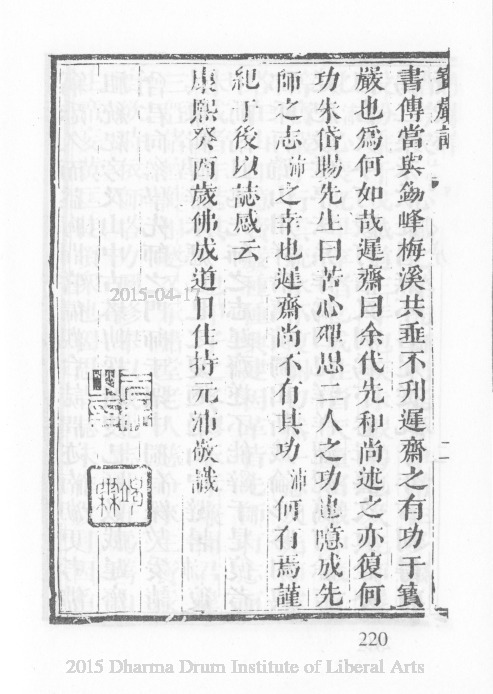 書傳當與勁峰梅溪共垂不刊遲齋之有功于寶
嚴也為何如哉遲齋曰余代先和尚述之亦復何
功朱岱暘先生曰苦心殫思二人之功也噫成先
師之志沛之幸也遲齋尚不有其功沛何有焉謹
紀于後以誌感云
康熙癸酉歲佛成道日住持元沛敬識
2015-04-17
220
2015 Dharma Drum Institute of Liberal Arts